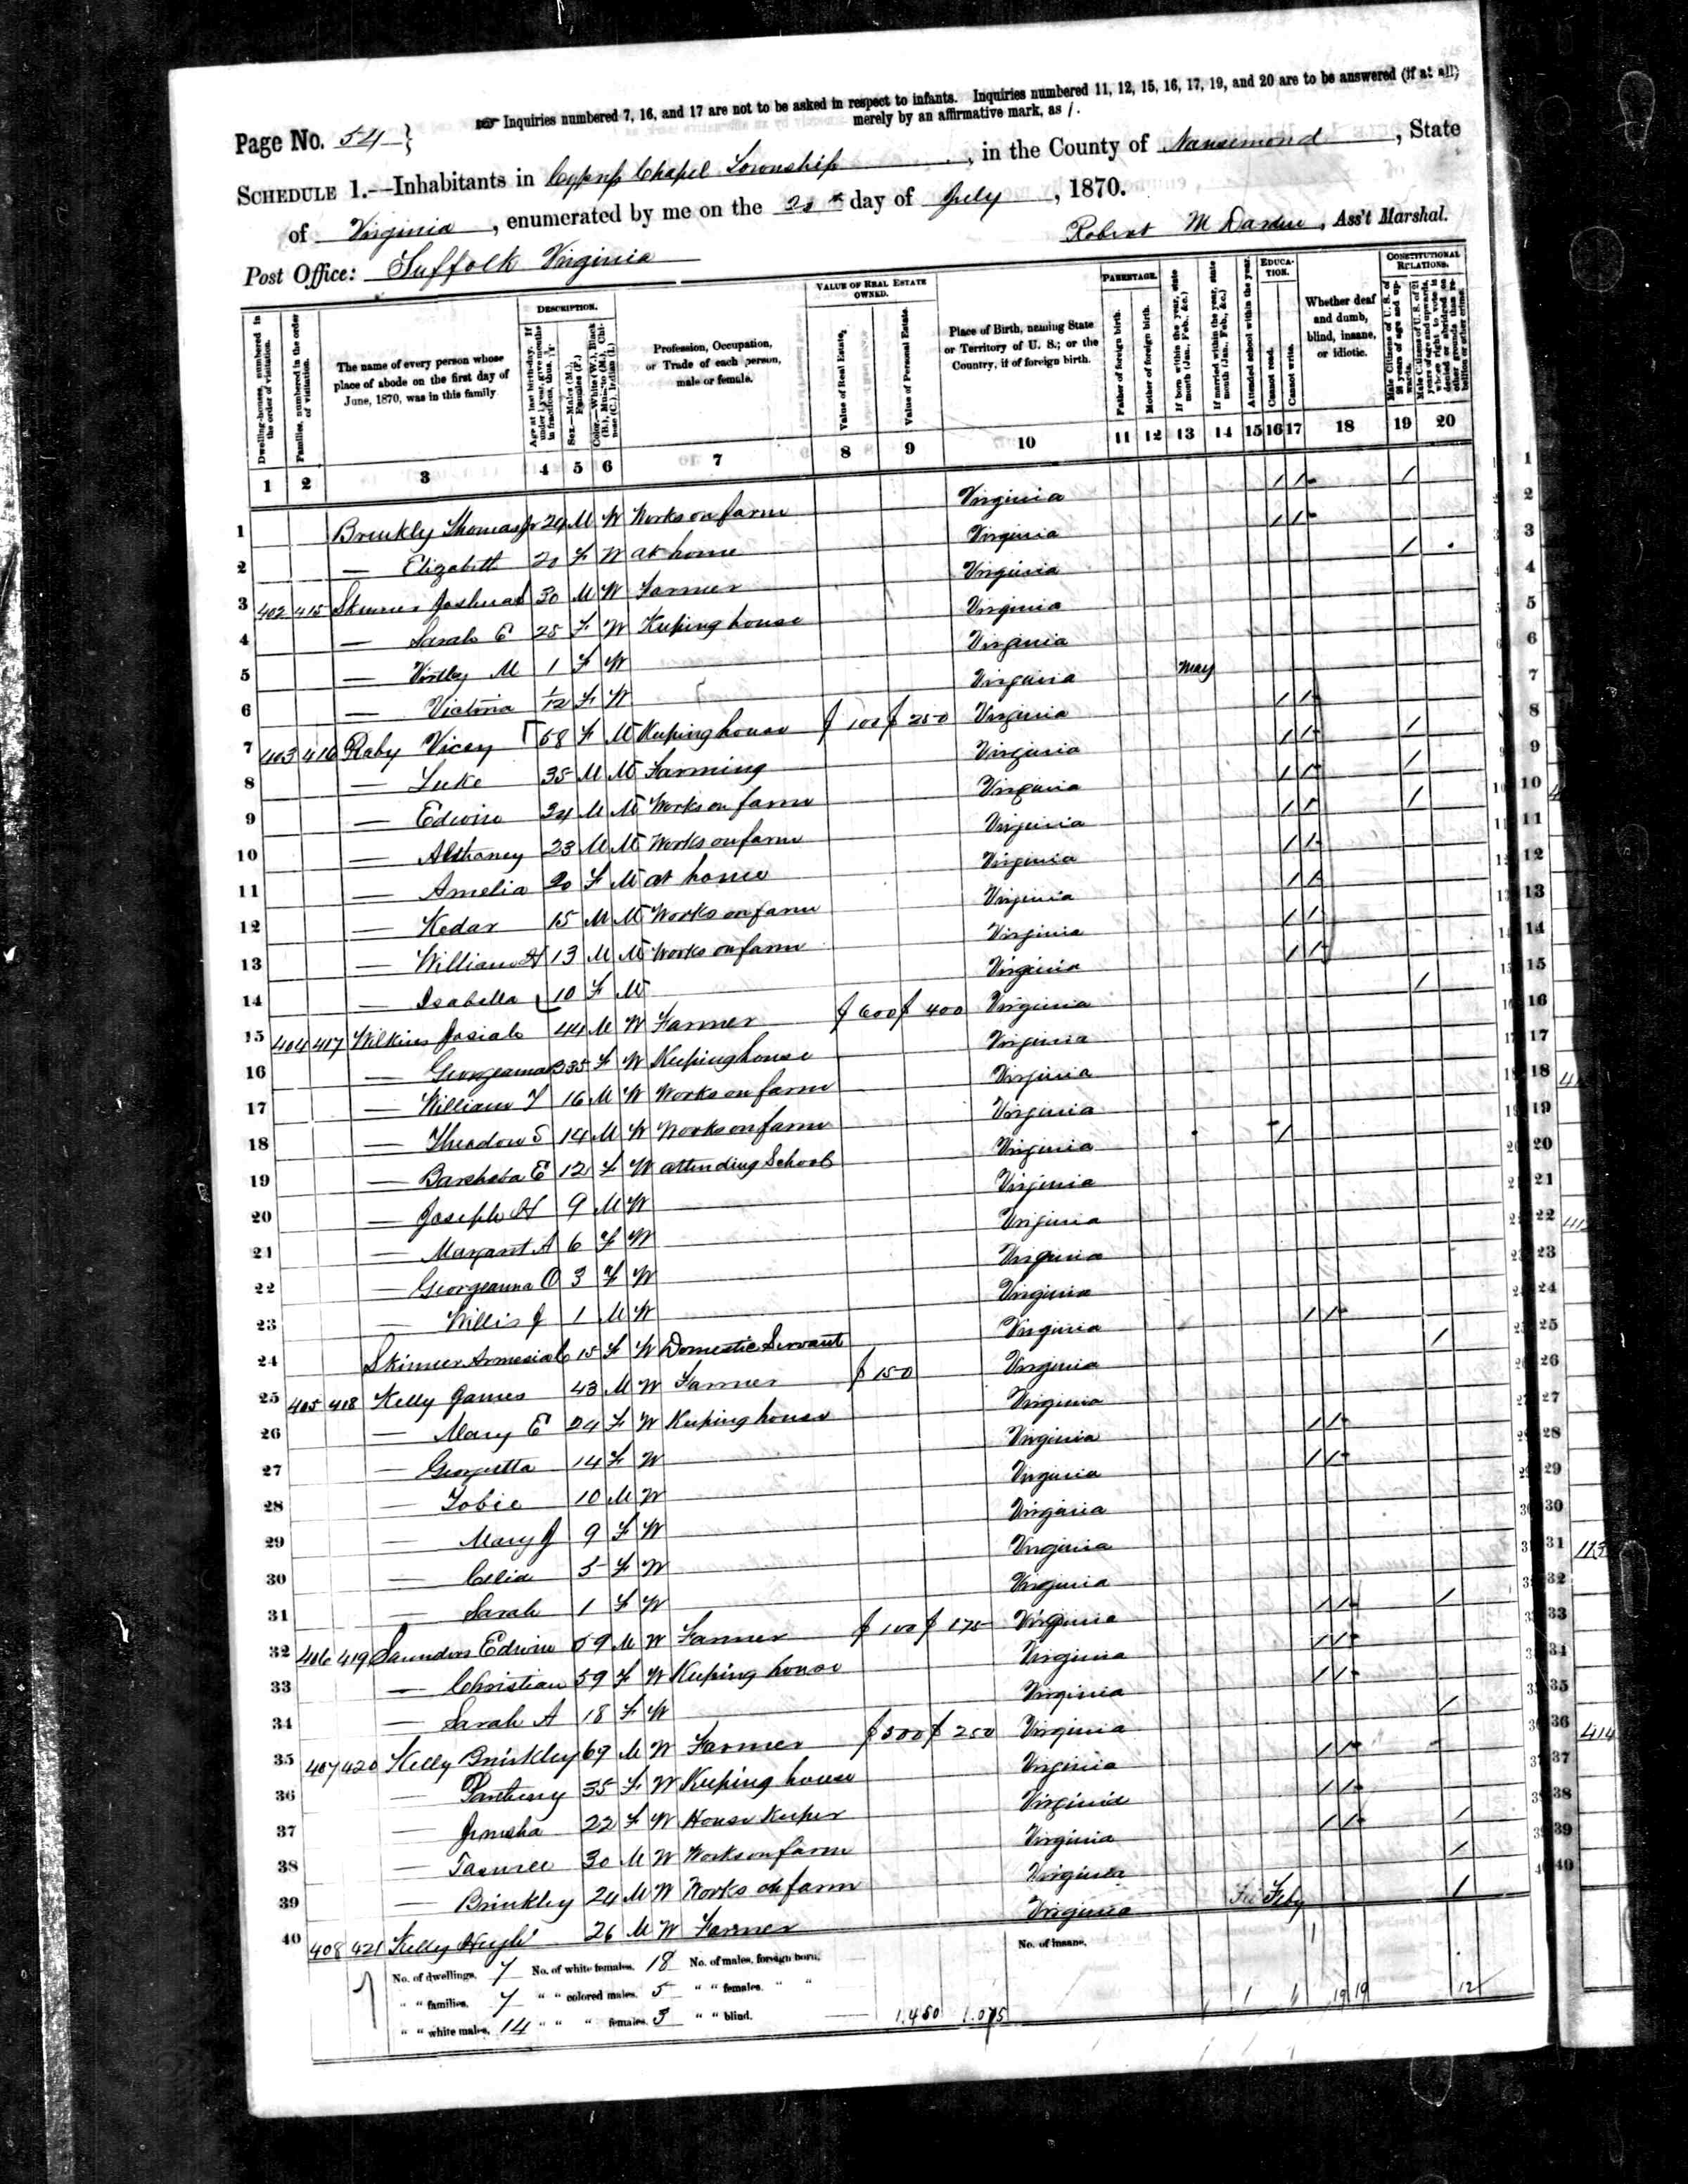 Inquiries numbered 7, 16, and 17 are not to be asked in respect to infants. Inquiries numbered 11, 12, 15, 16, 17, 19, and 20 are to be answered (if at all)
merely by an affirmative mark, as /.
Page No. 54
SCHEDULE 1.—Inhabitants in Cypress Chapel Township, in the County of Nansemond, State
of Virginia, enumerated by me on the day of July, 1870.
Post Office: Suffolk Virginia
Robert M, Ass't Marshal.
DESCRIPTION. VALUE OF REAL ESTATE OWNED. PARENTAGE. EDUCATION. CONSTITUTIONAL RELATIONS.
Dwelling-houses, numbered in the order of visitation.
Families, numbered in the order of visitation.
The name of every person whose place of abode on the first day of June, 1870, was in this family.
Age at last birth-day. If under 1 year, give months in fractions, thus,
Sex.—Males (M.), Females (F.)
Color.—White (W.), Black (B.), Mulatto (M.), Chinese (C.), Indian (I.)
Profession, Occupation, or Trade of each person, male or female.
Value of Real Estate.
Value of Personal Estate.
Place of Birth, naming State or Territory of U. S.; or the Country, if of foreign birth.
Father of foreign birth.
Mother of foreign birth.
If born within the year, state month (Jan., Feb., &c.)
If married within the year, state month (Jan., Feb., &c.)
Attended school within the year.
Cannot read.
Cannot write.
Whether deaf and dumb, blind, insane, or idiotic.
Male Citizens of U. S. of 21 years of age and upwards.
Male Citizens of U. S. of 21 years of age and upwards, whose right to vote is denied or abridged on other grounds than rebellion or other crime.
1 2 3 4 5 6 7 8 9 10 11 12 13 14 15 16 17 18 19 20
1 Brinkly Thomas Jr 24 M W Works on farm Virginia / / /
2 — Elizabeth 20 F W at home Virginia / /
3 402 415 Skinner Joshua 30 M W Farmer Virginia /
4 — Sarah E 25 F W Keeping house Virginia
5 — M 1 F W Virginia
6 — Victoria 1/12 F W Virginia May
7 403 416 Raby Vicey 58 F M Keeping house $ 100 $ 250 Virginia / /
8 — Luke 35 M M Farming Virginia / / /
9 — Edwin 24 M M Works on farm Virginia / / /
10 — 23 M M Works on farm Virginia / / /
11 — Amelia 20 F M at home Virginia / /
12 — Kedar 15 M M Works on farm Virginia / /
13 — William H 13 M M Works on farm Virginia / /
14 — Isabella 10 F M Virginia / /
15 404 417 Wilkins Josiah 44 M W Farmer $ 600 $ 400 Virginia /
16 — Georgeanna 35 F W Keeping house Virginia
17 — William T 16 M W Works on farm Virginia
18 — S 14 M W Works on farm Virginia
19 — Barsheba E 12 F W attending School Virginia /
20 — Joseph H 9 M W Virginia
21 — Margaret A 6 F W Virginia
22 — Georgeanna O 3 F W Virginia
23 — Willis J 1 M W Virginia
24 Skinner 15 F W Domestic Servant Virginia / /
25 405 418 Kelly James 43 M W Farmer $ 150 Virginia /
26 — Mary E 24 F W Keeping house Virginia
27 — Georgetta 14 F W Virginia / /
28 — Tobie 10 M W Virginia / /
29 — Mary J 9 F W Virginia
30 — Celia 5 F W Virginia
31 — Sarah 1 F W Virginia
32 406 419 Saunders Edwin 59 M W Farmer $ 100 $ 175 Virginia / / /
33 — Christian 59 F W Keeping house Virginia / /
34 — Sarah A 18 F W Virginia / /
35 407 420 Kelly Brinkley 69 M W Farmer $ 500 $ 250 Virginia /
36 — 35 F W Keeping house Virginia / /
37 — 22 F W House Keeper Virginia / /
38 — 30 M W Works on farm Virginia / / /
39 — Brinkley 24 M W Works on farm Virginia /
40 408 421 Kelly Hugh 26 M W Farmer Virginia Feby /
No. of dwellings, 7 No. of white females, 18 No. of males, foreign born, No. of insane,
" " families, 7 " " colored males, 5 " " females, " "
" " white males, 14 " " " females, 3 " " blind, 1.450 1.075 1 19 19 12